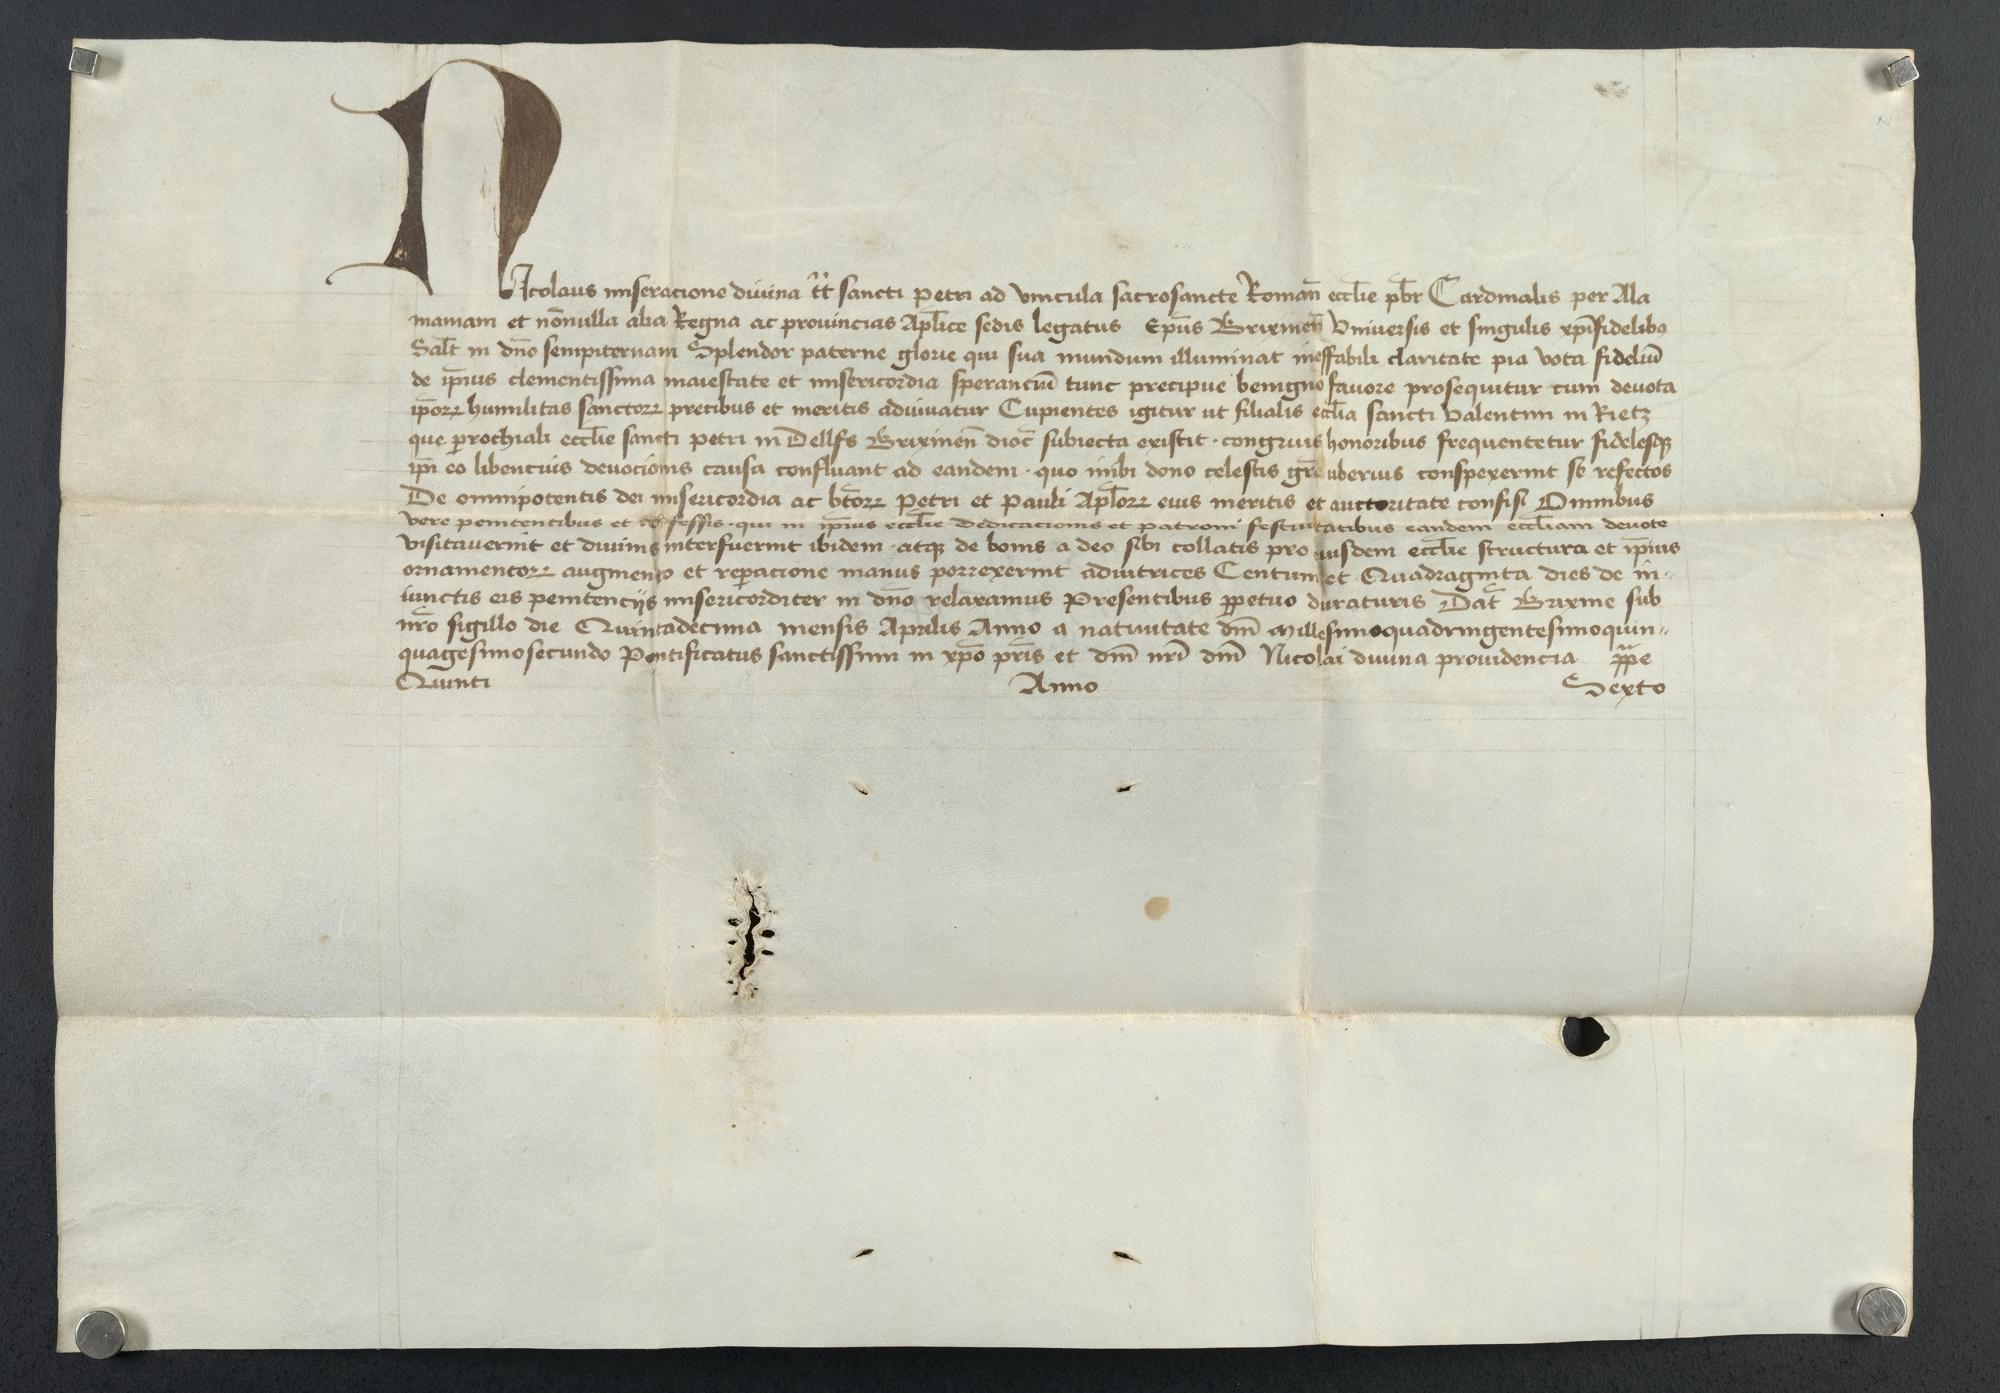 Nicolaus miseracione divina tt̄ sancti Petri ad vincula sacrosancte Roman̄ eccl̄ie pb̄r Cardinalis per Ala
maniam et nōnulla alia Regna ac provincias Apl̄ice sedis legatus Ep̄us Brixinen̄ Universis et singulis xp̄ifidelibꝯ
Sal̄t in dn̄o sempiternam Splendor paterne glorie qui sua mundum illuminat ineffabili claritate pia vota fideliū
de ip̄ius clementissima maiestate et misericordia speranciū tunc precipue benigno favore prosequitur cum devota
ip̄oꝝ humilitas sanctoꝝ precibus et meritis adiuvatur Cupientes igitur ut filialis eccl̄ia sancti Valentini in Rietz
que ꝑrochiali eccl̄ie sancti Petri in Dellfs Brixinen̄ dioc̄ subiecta existit · congruis honoribus frequentetur fidelesqꝫ
ip̄i eo libencius devocionis causa confluant ad eandem · quo inibi dono celestis gr̄e uberius conspexerint se refectos
De omnipotentis dei misericordia ac bt̄oꝝ Petri et Pauli Apl̄oꝝ eius meritis et auctoritate confisi Omnibus
vere penitentibus et cōfessis · qui in ip̄ius eccl̄ie dedicacionis et patroni festivitatibus eandem eccl̄iam devote
visitaverint et divinis interfuerint ibidem · atqꝫ de bonis a deo sibi collatis pro eiusdem eccl̄ie structura et ip̄ius
ornamentoꝝ augmento et reꝑacione manus porrexerint adiutrices Centum et Quadraginta dies de in-
iunctis eis penitenciis misericorditer in dn̄o relaxamus Presentibus ꝑpetuo duraturis Dat̄ Brixine sub
nr̄o sigillo die Quintadecima mensis Aprilis Anno a nativitate dn̄i Millesimoquadringentesimoquin-
quagesimosecundo Pontificatus sanctissimi in xp̄o pr̄is et dn̄i nr̄i dn̄i Nicolai divina providencia pp̄e
Quinti Anno Sexto